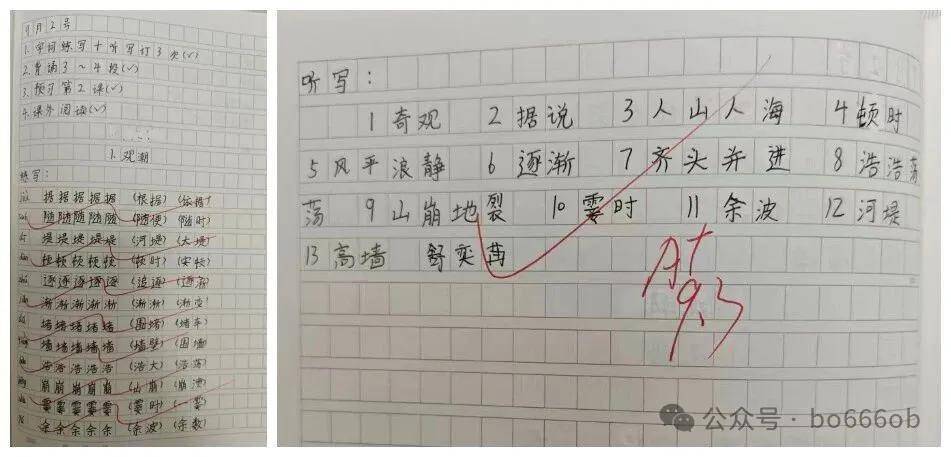 9月2号
1.字词练写+听写订3次(√)
2.背诵3~4段(√)
3.预习第2课(√)
4.课外阅读(√)
1.观潮
练写:
据据据据据 (根据) (依据)
随随随随随 (随便) (随时)
堤堤堤堤堤 (河堤) (大堤)
顿顿顿顿顿 (顿时)
逐逐逐逐逐 (追逐) (逐渐)
渐渐渐渐渐 (渐渐) (渐变)
堵堵堵堵堵 (围堵) (堵车)
墙墙墙墙墙 (墙壁) (围墙)
浩浩浩浩浩 (浩大) (浩荡)
崩崩崩崩崩 (山崩) (崩溃)
霎霎霎霎霎 (霎时) (一霎)
余余余余余 (余波) (余数)
听写:
1 奇观 2 据说 3 人山人海 4 顿时
5 风平浪静 6 逐渐 7 齐头并进 8 浩浩荡
荡 9 山崩地裂 10 霎时 11 余波 12 河堤
13 高墙 舒奕苒
A+
9.3
公众号·bo666ob